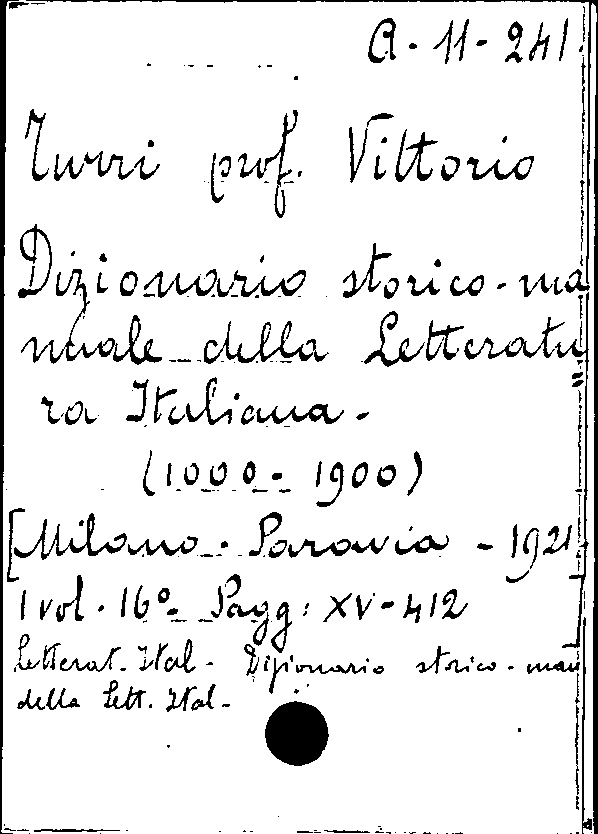 A-11-241.
Turri prof. Vittorio
Dizionario storico-ma
nuale della Letteratu=
ra Italiana.
(1000-1900)
[Milano. Paravia - 1921.]
1 vol. 16º. Pagg: XV-412
Letterat. Ital - Dizionario storico-man.
della Lett. Ital-